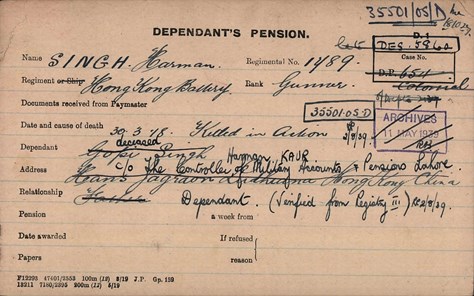 35501/05/D
DEPENDANT'S PENSION.
D. 1
DES. 5960
Case No.
Name SINGH. Harman. Regimental No. 1489.
D.P. 654
Colonial
Regiment or Ship Hong Kong Battery Rank Gunner.
Documents received from Paymaster
35501.05.D
ARCHIVES
11 MAY 1939
Date and cause of death 30.3.18. Killed in Action 2/8/39
deceased
Dependant Gopi Singh Harman KAUR
c/o The Controller of Military Accounts & Pensions Lahore.
Address Jagraon Ludhiana Hong Kong China
Relationship Father Dependant. (Verified from Registry III) 2/8/39.
Pension a week from
Date awarded If refused
Papers reason
F12293 47401/3553 100m (12) 8/19 J.P. Gp. 139